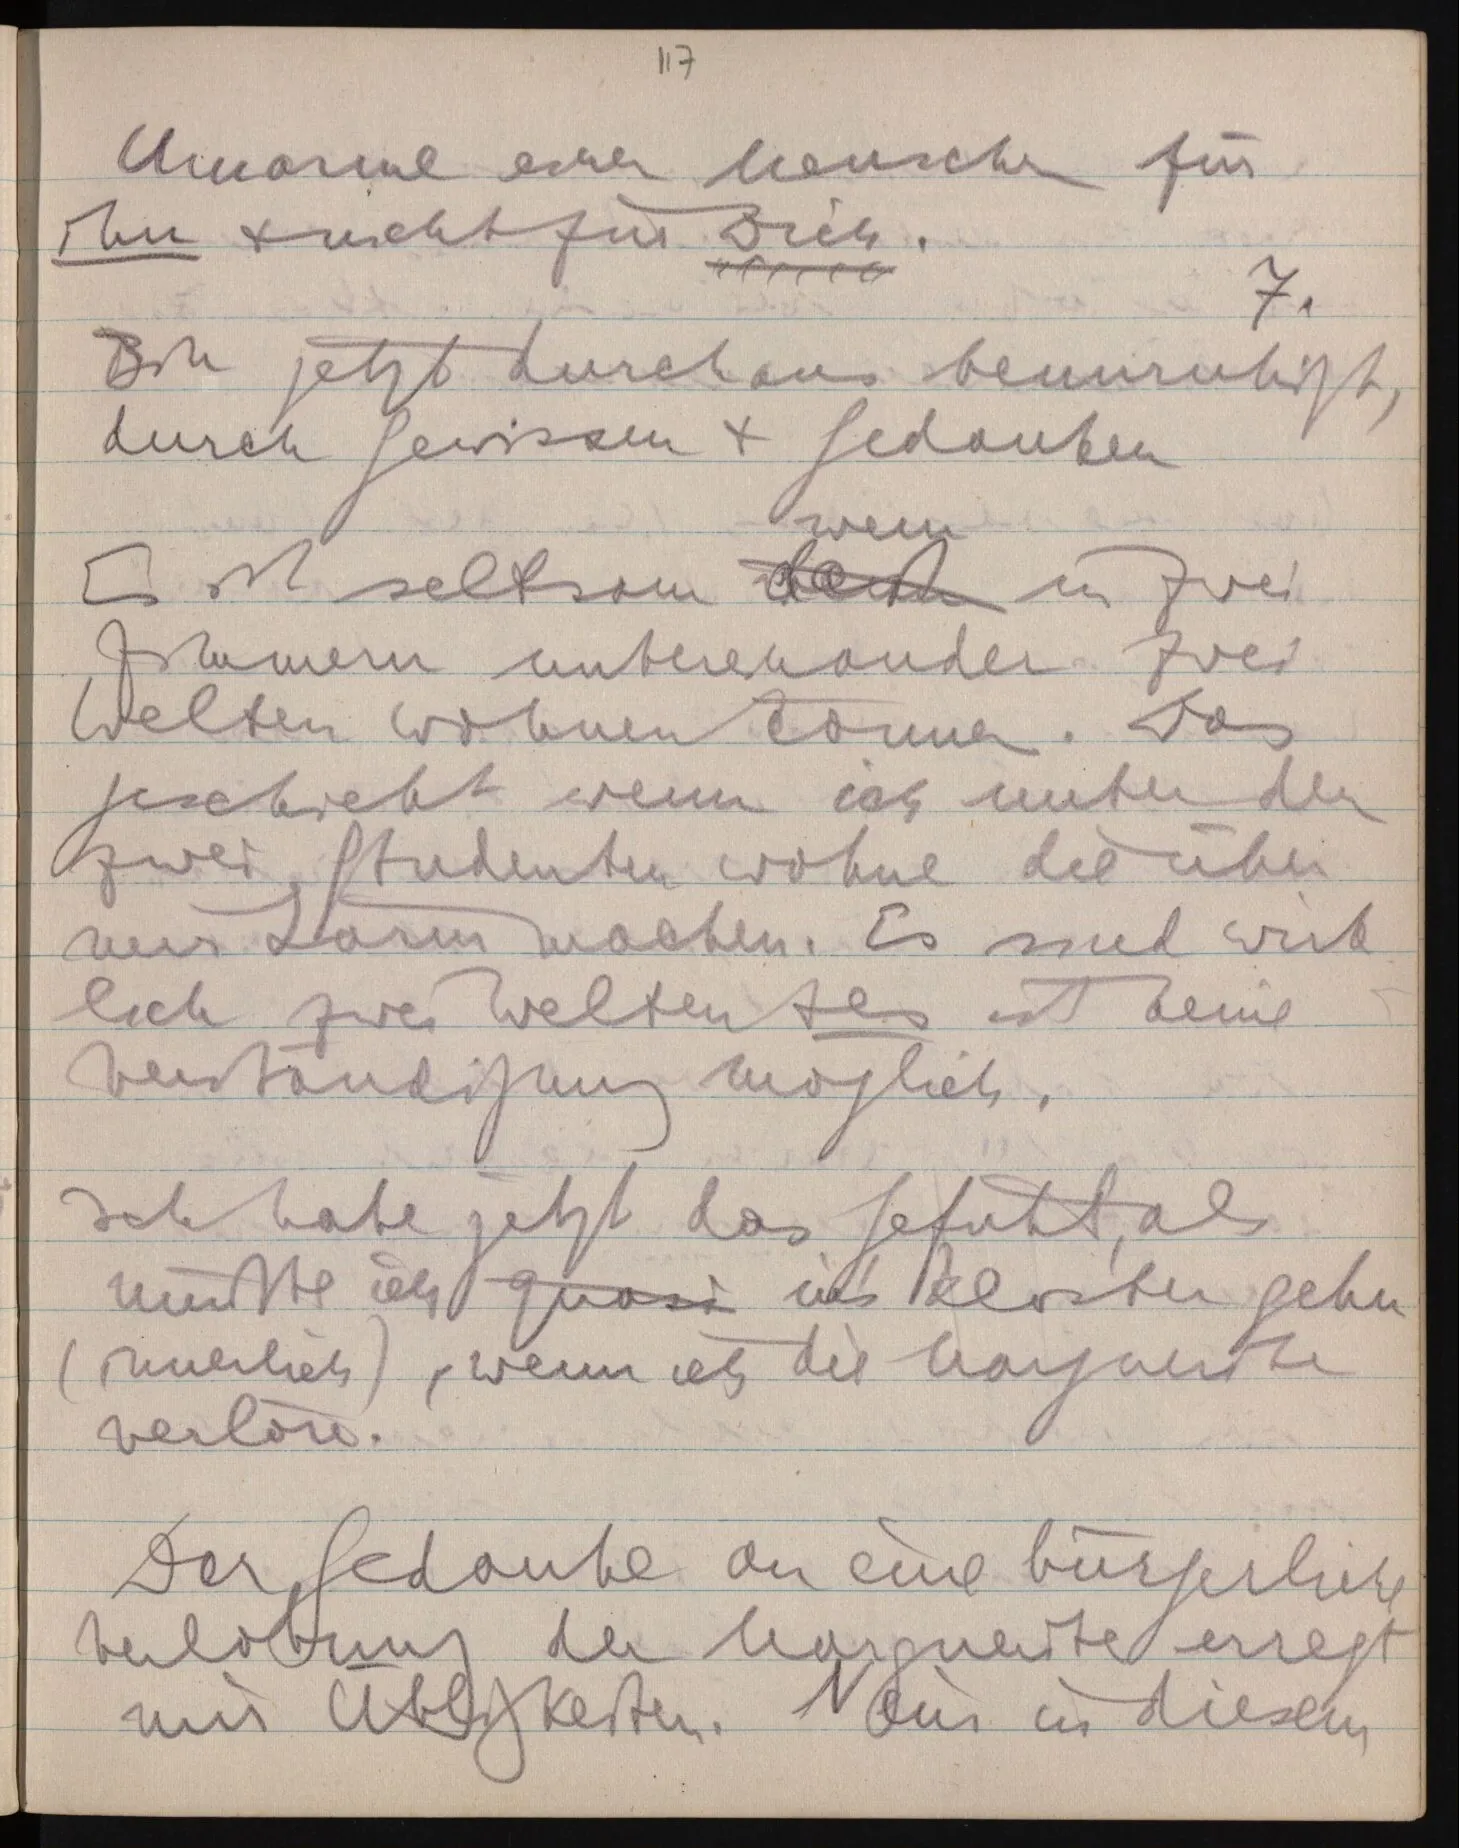 117
Umarme einen Menschen für
ihn & nicht für Dich.
7.
Bin jetzt durchaus beunruhigt,
durch Gewissen & Gedanken
wenn
Es ist seltsam in zwei
Zimmern untereinander zwei
Welten wohnen können. Das
geschieht wenn ich unter den
zwei Studenten wohne die über
mir Lärm machen. Es sind wirk
lich zwei Welten & es ist keine
Verständigung möglich.
Ich habe jetzt das Gefühl, als
müßte ich quasi in's Kloster gehn
(innerlich), wenn ich die Marguerite
verlöre.
Der Gedanke an eine bürgerliche
Verlobung der Marguerite erregt
mir Übligkeiten. Nein in diesem